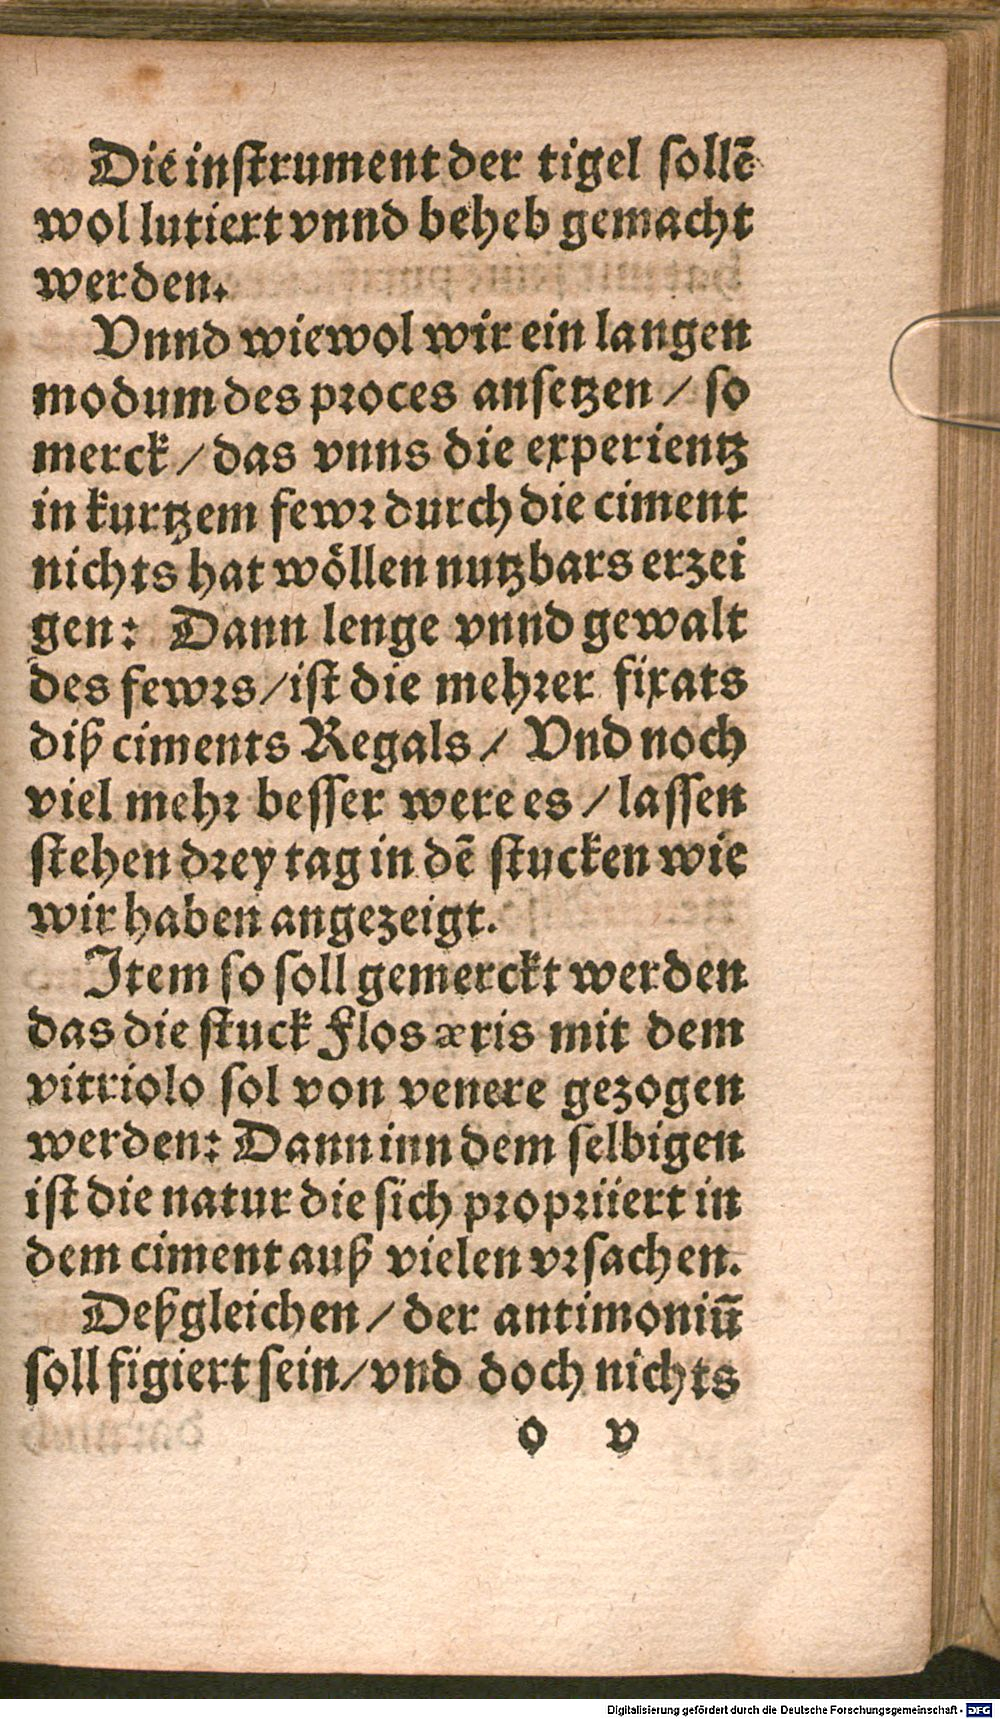 Die instrument der tigel sollẽ
wol lutiert vnnd beheb gemacht
werden.
Vnnd wiewol wir ein langen
modum des proces ansetzen / so
merck / das vnns die experientz
in kurtzem fewr durch die ciment
nichts hat wöllen nutzbars erzei
gen: Dann lenge vnnd gewalt
des fewrs / ist die mehrer fixats
diß ciments Regals / Vnd noch
viel mehr besser were es / lassen
stehen drey tag in dẽ stucken wie
wir haben angezeigt.
Item so soll gemerckt werden
das die stuck flos æris mit dem
vitriolo sol von venere gezogen
werden: Dann inn dem selbigen
ist die natur die sich propriiert in
dem ciment auß vielen vrsachen.
Deßgleichen / der antimoniũ
soll figiert sein / vnd doch nichts
o v
Digitalisierung gefördert durch die Deutsche Forschungsgemeinschaft - DFG